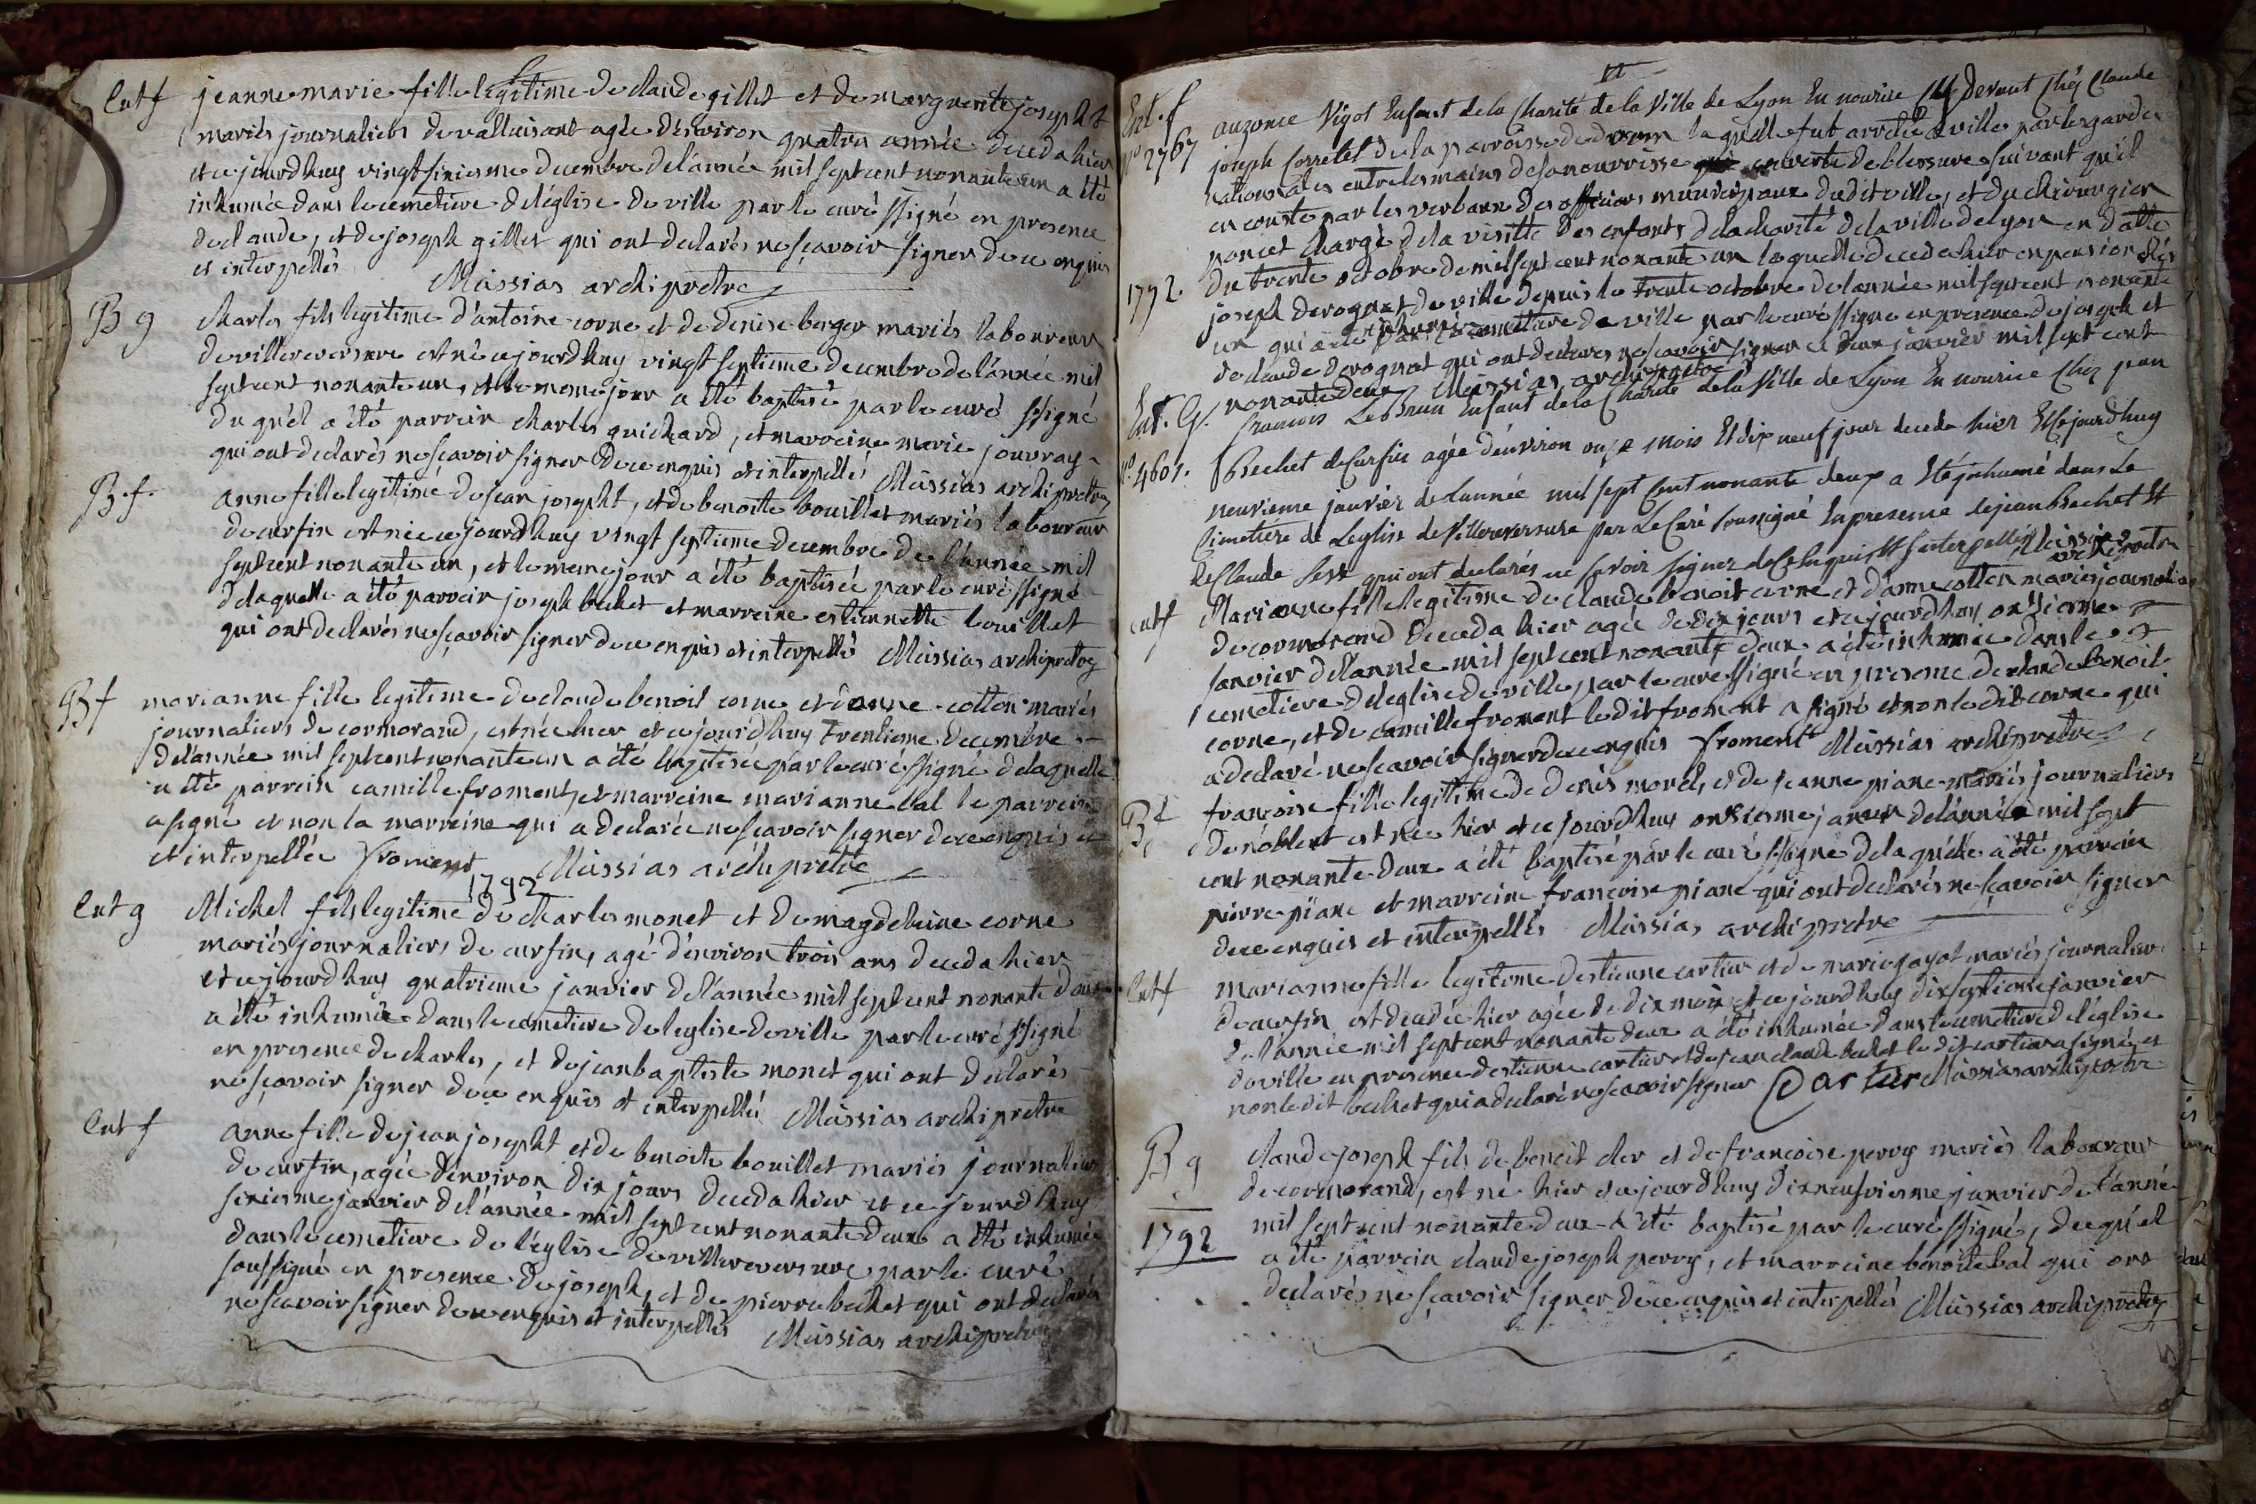 Ent f jeanne marie fille legitime de claude gillet et de marguerite josepht
mariés journaliers de valluisant agée d'environ quatre année deceda hier
et ce jourd'huy vingt sixiesme decembre de l'année mil sept cent nonante un a été
inhumée dans le cemetiere de l'église de ville par le curé ssigné en presence
de claude, et de joseph gillet qui ont declarés ne sçavoir signer de ce enquis
et interpellés Missias archipretre
B g charles fils legitime d'antoine corne et de denise berger mariés laboureurs
de villereversure est né ce jourd'huy vingt septieme decembre de l'année mil
sept cent nonante un, et le meme jour a été baptisé par le curé ssigné
du quel a été parrein charles guichard, et marreine marie jouvray
qui ont declarés ne sçavoir signer de ce enquis et interpellés Missias archipretre
B. f. anne fille legitime de jean josepht, et de benoite bouillet mariés laboureur
de curfin est née ce jourd'huy vingt septieme decembre de l'année mil
sept cent nonante un, et le meme jour a été baptisée par le curé ssigné
de laquelle a été parrein joseph bechet et marreine estiennette bouillet
qui ont declarés ne sçavoir signer de ce enquis et interpellé Missias archipretre
B f marianne fille legitime de claude benoit corne et d'anne cotton mariés
journaliers de cormorand, est née hier et ce jourd'huy trentieme decembre
de l'année mil sept cent nonante un a été baptisée par le curé ssigné de laquelle
a été parrein camille froment, et marreine marianne bal le parrein
a signé et non la marreine qui a declarée ne sçavoir signer de ce enquis
et interpellée froment Missias archipretre
1792
Ent g Michel fils legitime de charles monet et de magdeleine corne
mariés journaliers de curfin, agé d'environ trois ans deceda hier
et ce jourd'huy quatrieme janvier de l'année mil sept cent nonante deux
a été inhumé dans le cemetiere de l'eglise de ville par le curé ssigné
en presence de charles, et de jean baptiste monet qui ont declarés
ne sçavoir signer de ce enquis et interpellé Missias archipretre
Ent f anne fille de jean josepht et de benoite bouillet mariés journaliers
de curfin, agée d'environ dix jours deceda hier et ce jourd'huy
sixiesme janvier de l'année mil sept cent nonante deux a été inhumée
dans le cemetiere de l'église de villereversure par le curé
soussigné en presence de joseph, et de pierre bechet qui ont declarés
ne sçavoir signer de ce enquis et interpellés Missias archipretre
Ent. f auzonce Vigot Enfant de la Charité de la Ville de Lyon En nourice Cy devant Chéz Claude
n° 2767 joseph Correlet de la parroisse de drom la quelle fut arretée a ville par les gardes
nationales entre les mains de sa nourrisse couverte de blessures suivant qu'il
en conste par les verbaux des officiers municipaux du dit ville, et du chirurgien
poncet chargé de la visitte des enfants de la charité de la ville de lyon en datte
1792. du trente octobre de mil sept cent nonante un laquelle deceda hier en pension chés
joseph derognat de ville depuis le trente octobre de l'année mil sept cent nonante
un qui a été inhumée cemetiere de ville par le curé ssigné en presence de joseph et
de claude derognat qui ont declarés ne sçavoir signer ce deux janvier mil sept cent
nonante deux Missias archipretre
Ent. G. francois LeBrun Enfant de la Charité de la Ville de Lyon En nourice Chez jean
n° 4601. Bechet de Curfin agée d'environ onze mois Et dix neuf jour deceda hier Et ce jourd'huy
neuvieme janvier de l'année mil sept Cent nonante deux a Eté jnhumé dans Le
Cimetiere de L'eglise de Villereversure par Le Curé soussigné En presence de jean Bechet Et
de Claude qui ont declarés ne savoir signer de Ce Enquis Et jnterpellés Missias archipretre
Ent f Marianne fille legitime de claude benoit corne et d'anne cotton mariés journaliers
de cormorand deceda hier agée de dix jours et ce jourd'huy onsieme
janvier de l'année mil sept cent nonante deux a été inhumée dans le
cemetiere de l'eglise de ville par le curé ssigné en presence de claude benoit
corne, et de camille froment le dit froment a signé et non le dit corne qui
a declaré ne sçavoir signer de ce enquis froment Missias archipretre
B f françoise fille legitime de denis morel, et de jeanne piane mariés journaliers
de noblent est née hier et ce jourd'huy onsiesme janvier de l'année mil sept
cent nonante deux a été baptisé par le curé ssigné de la quelle a été parrein
pierre piane et marreine françoise piane qui ont declarés ne sçavoir signer
de ce enquis et interpellés Missias archipretre
Ent f marianne fille legitime d'estienne cartier et de marie gayot mariés journaliers
de curfin est decedée hier agée de dix mois et ce jourd'huy dix septieme janvier
de l'année mil sept cent nonante deux a été inhumée dans le cemetiere de l'église
de ville en presence d'estienne cartier et de jean claude bechet le dit cartier a signé, et
non le dit bechet qui a declaré ne sçavoir signer Cartier Missias archipretre
B g claude joseph fils de benoit cler et de francoise perry mariés laboureur
de cormorand, est né hier et ce jourd'huy dixneufviesme janvier de l'année
1792 mil sept cent nonante deux a été baptisé par le curé ssigné, du quel
a été parrein claude joseph perry, et marreine benoite bal qui ont
declarés ne sçavoir signer de ce enquis et interpellés Missias archipretre